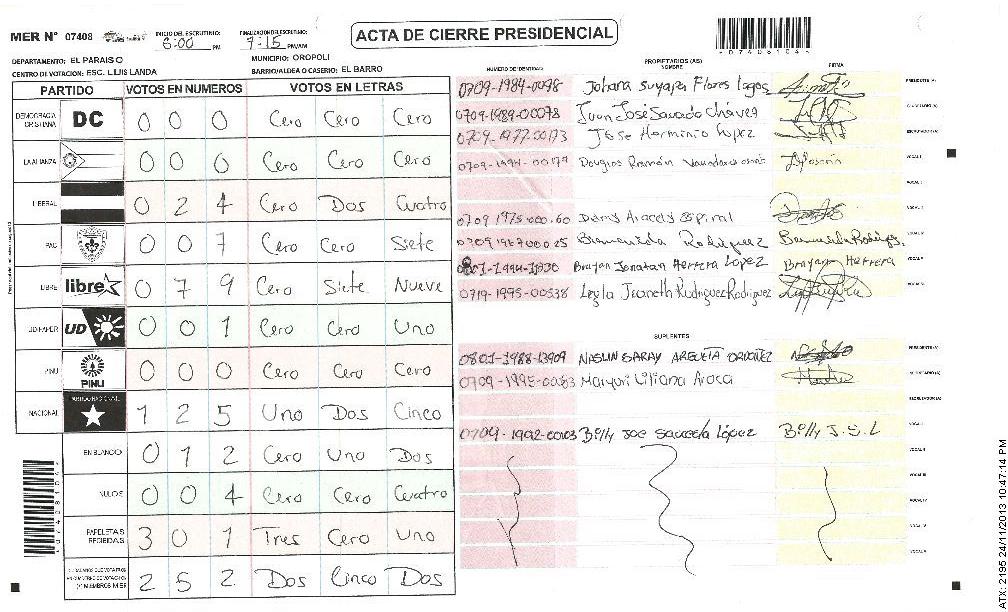 MER N° 07408
INICIO DEL ESCRUTINIO: 6:00 PM
FINALIZACION DEL ESCRUTINIO: 7:15 PM/AM
ACTA DE CIERRE PRESIDENCIAL
07408104
DEPARTAMENTO: EL PARAISO
MUNICIPIO: OROPOLI
CENTRO DE VOTACION: ESC. LUIS LANDA
BARRIO/ALDEA O CASERIO: EL BARRO
PARTIDO VOTOS EN NUMEROS VOTOS EN LETRAS
DEMOCRACIA CRISTIANA DC 0 0 0 Cero Cero Cero
LA ALIANZA 0 0 0 Cero Cero Cero
LIBERAL 0 2 4 Cero Dos Cuatro
PAC 0 0 7 Cero Cero Siete
LIBRE libre 0 7 9 Cero Siete Nueve
UD/FAPER UD 0 0 1 Cero Cero Uno
PINU PINU 0 0 0 Cero Cero Cero
NACIONAL PARTIDO NACIONAL 1 2 5 Uno Dos Cinco
EN BLANCO 0 1 2 Cero Uno Dos
NULOS 0 0 4 Cero Cero Cuatro
PAPELETAS RECIBIDAS 3 0 1 Tres Cero Uno
CIUDADANOS QUE VOTARON 2 5 2 Dos Cinco Dos
07408104
NUMERO DE IDENTIDAD PROPIETARIOS (AS) NOMBRE FIRMA
0709-1984-0098 Johana Suyapa Flores Lagos PRESIDENTE (A)
0709-1989-00078 Juan José Saucedo Chávez SECRETARIO (A)
0709-1977-00173 José Herminio Lopez ESCRUTADOR (A)
0709-1994-00179 Douglas Ramón VOCAL I
VOCAL II
0709 1975-000.60 Deny Aracely Espinal
0709 1967 000 25 Bienvenida Rodriguez Bienvenida Rodriguez
Brayan Jonatan Herrera Lopez Brayan Herrera
0719-1995-00538 Leyla Jeaneth Rodriguez Rodriguez
SUPLENTES
0801-1988-13909 NASLIN SARAY ARGUETA ORDOÑEZ PRESIDENTE (A)
0709-1995-00063 Maryuri Liliana Aroca SECRETARIO (A)
ESCRUTADOR (A)
0704-1992-00103 Billy Joe Sauceda López Billy J.S.L VOCAL I
VOCAL II
VOCAL III
VOCAL IV
VOCAL V
ATX: 2195 24/11/2013 10:47:14 PM